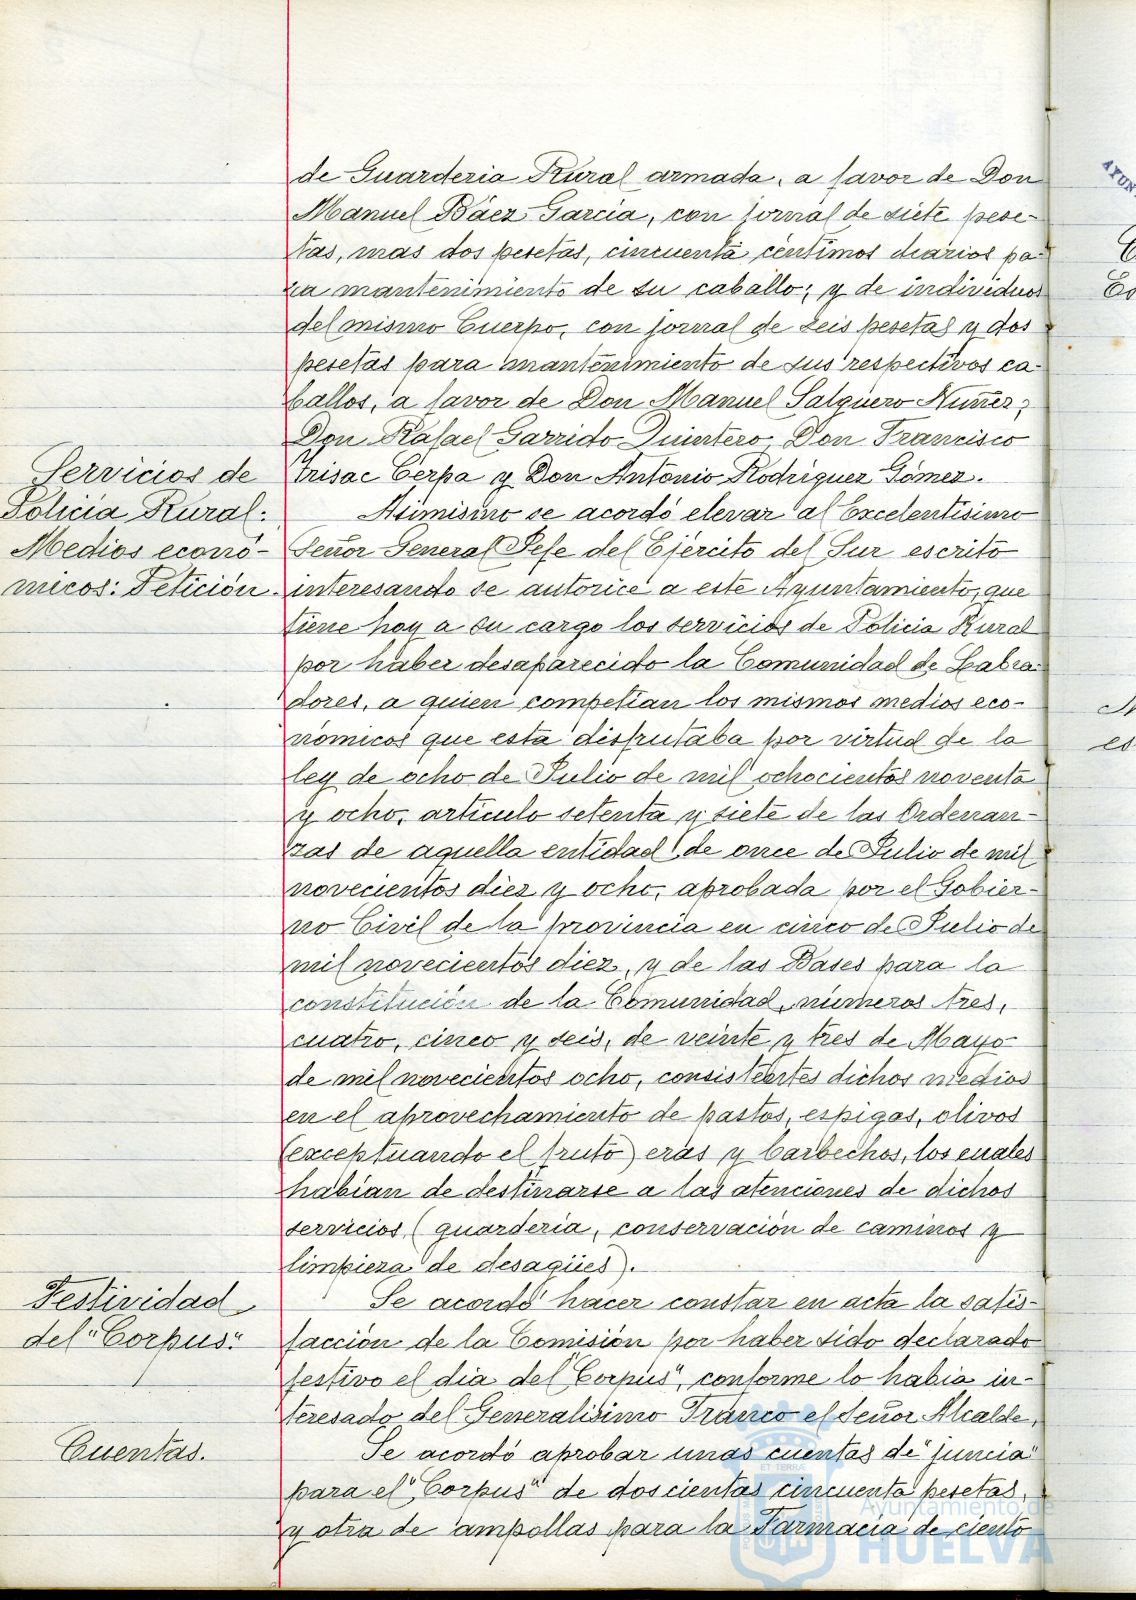 de Guarderia Rural armada, a favor de Don
Manuel Báez García, con jornal de siete pese-
tas, mas dos pesetas, cincuenta céntimos diarios pa-
ra mantenimiento de su caballo; y de individuos
del mismo Cuerpo, con jornal de seis pesetas y dos
pesetas para mantenimiento de sus respectivos ca-
ballos, a favor de Don Manuel Salguero Nuñez;
Don Rafael Garrido Quintero, Don Francisco
Trisac Cerpa y Don Antonio Rodríguez Gómez.
Servicios de
Policía Rural:
Medios econó-
micos: Petición.
Asimismo se acordó elevar al Excelentísimo
Señor General Jefe del Ejército del Sur escrito
interesando se autorice a este Ayuntamiento, que
tiene hoy a su cargo los servicios de Policia Rural
por haber desaparecido la Comunidad de Labra-
dores, a quien competian los mismos medios eco-
nómicos que esta disfrutaba por virtud de la
ley de ocho de Julio de mil ochocientos noventa
y ocho, artículo setenta y siete de las Ordenan-
zas de aquella entidad de once de Julio de mil
novecientos diez y ocho, aprobada por el Gobier-
no Civil de la provincia en cinco de Julio de
mil novecientos diez, y de las Bases para la
constitución de la Comunidad, números tres,
cuatro, cinco y seis, de veinte y tres de Mayo
de mil novecientos ocho, consistentes dichos medios
en el aprovechamiento de pastos, espigas, olivos
(exceptuando el fruto) eras y barbechos, los cuales
habian de destinarse a las atenciones de dichos
servicios (guarderia, conservación de caminos y
limpieza de desagües).
Festividad
del "Corpus".
Se acordó hacer constar en acta la satis-
facción de la Comisión por haber sido declarado
festivo el dia del "Corpus", conforme lo habia in-
teresado del Generalísimo Franco el Señor Alcalde.
Cuentas.
Se acordó aprobar unas cuentas de "juncia"
para el "Corpus" de doscientas cincuenta pesetas,
y otra de ampollas para la Farmacia de ciento
Ayuntamiento de
HUELVA